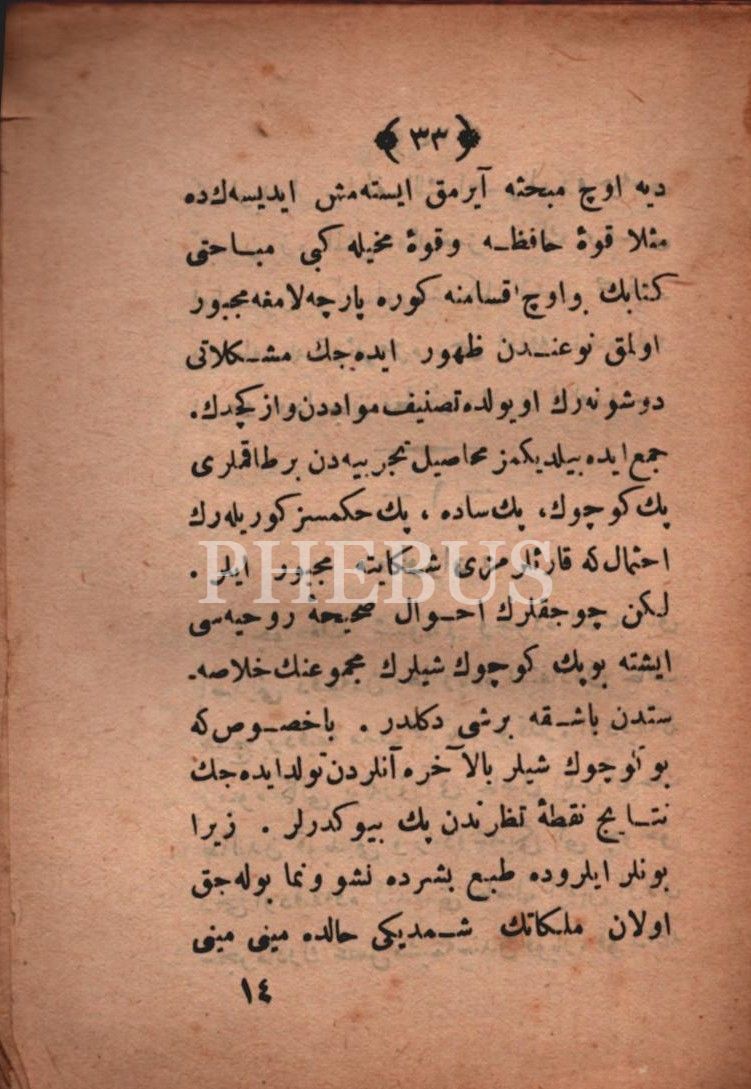 ﴿ ٣٣ ﴾
ديه اوچ مبحثه آيرمق ايستەمش ايديسەك ده
مثلا قوۀ حافظه وقوۀ مخيله كبى مباحثى
كتابك بو اوچ اقسامنه كوره پارچه لامغه مجبور
اولمق نوعندن ظهور ايده جك مشكلاتى
دوشونه رك او يولده تصنيف مواددن واز كچدك.
جمع ايده بيلديكمز محاصيل تجربيه دن بر طاقملرى
پك كوچوك، پك ساده ، پك حكمسز كوريله رك
احتمال كه قارئلرمزى اشتكايته مجبور ايلر .
لكن چوجقلرك احوال صحيحۀ روحيه سى
ايشته بو پك كوچوك شيلرك مجموعنك خلاصه-
سندن باشقه برشى دكلدر . باخصوص كه
بو كوچوك شيلر بالآخره آنلردن تولد ايده جك
نتايج نقطۀ نظرندن پك بيوكدرلر . زيرا
بونلر ايلروده طبع بشرده نشو ونما بوله جق
اولان ملكاتك شمديكى حالده مينى مينى
١٤
PHEBUS